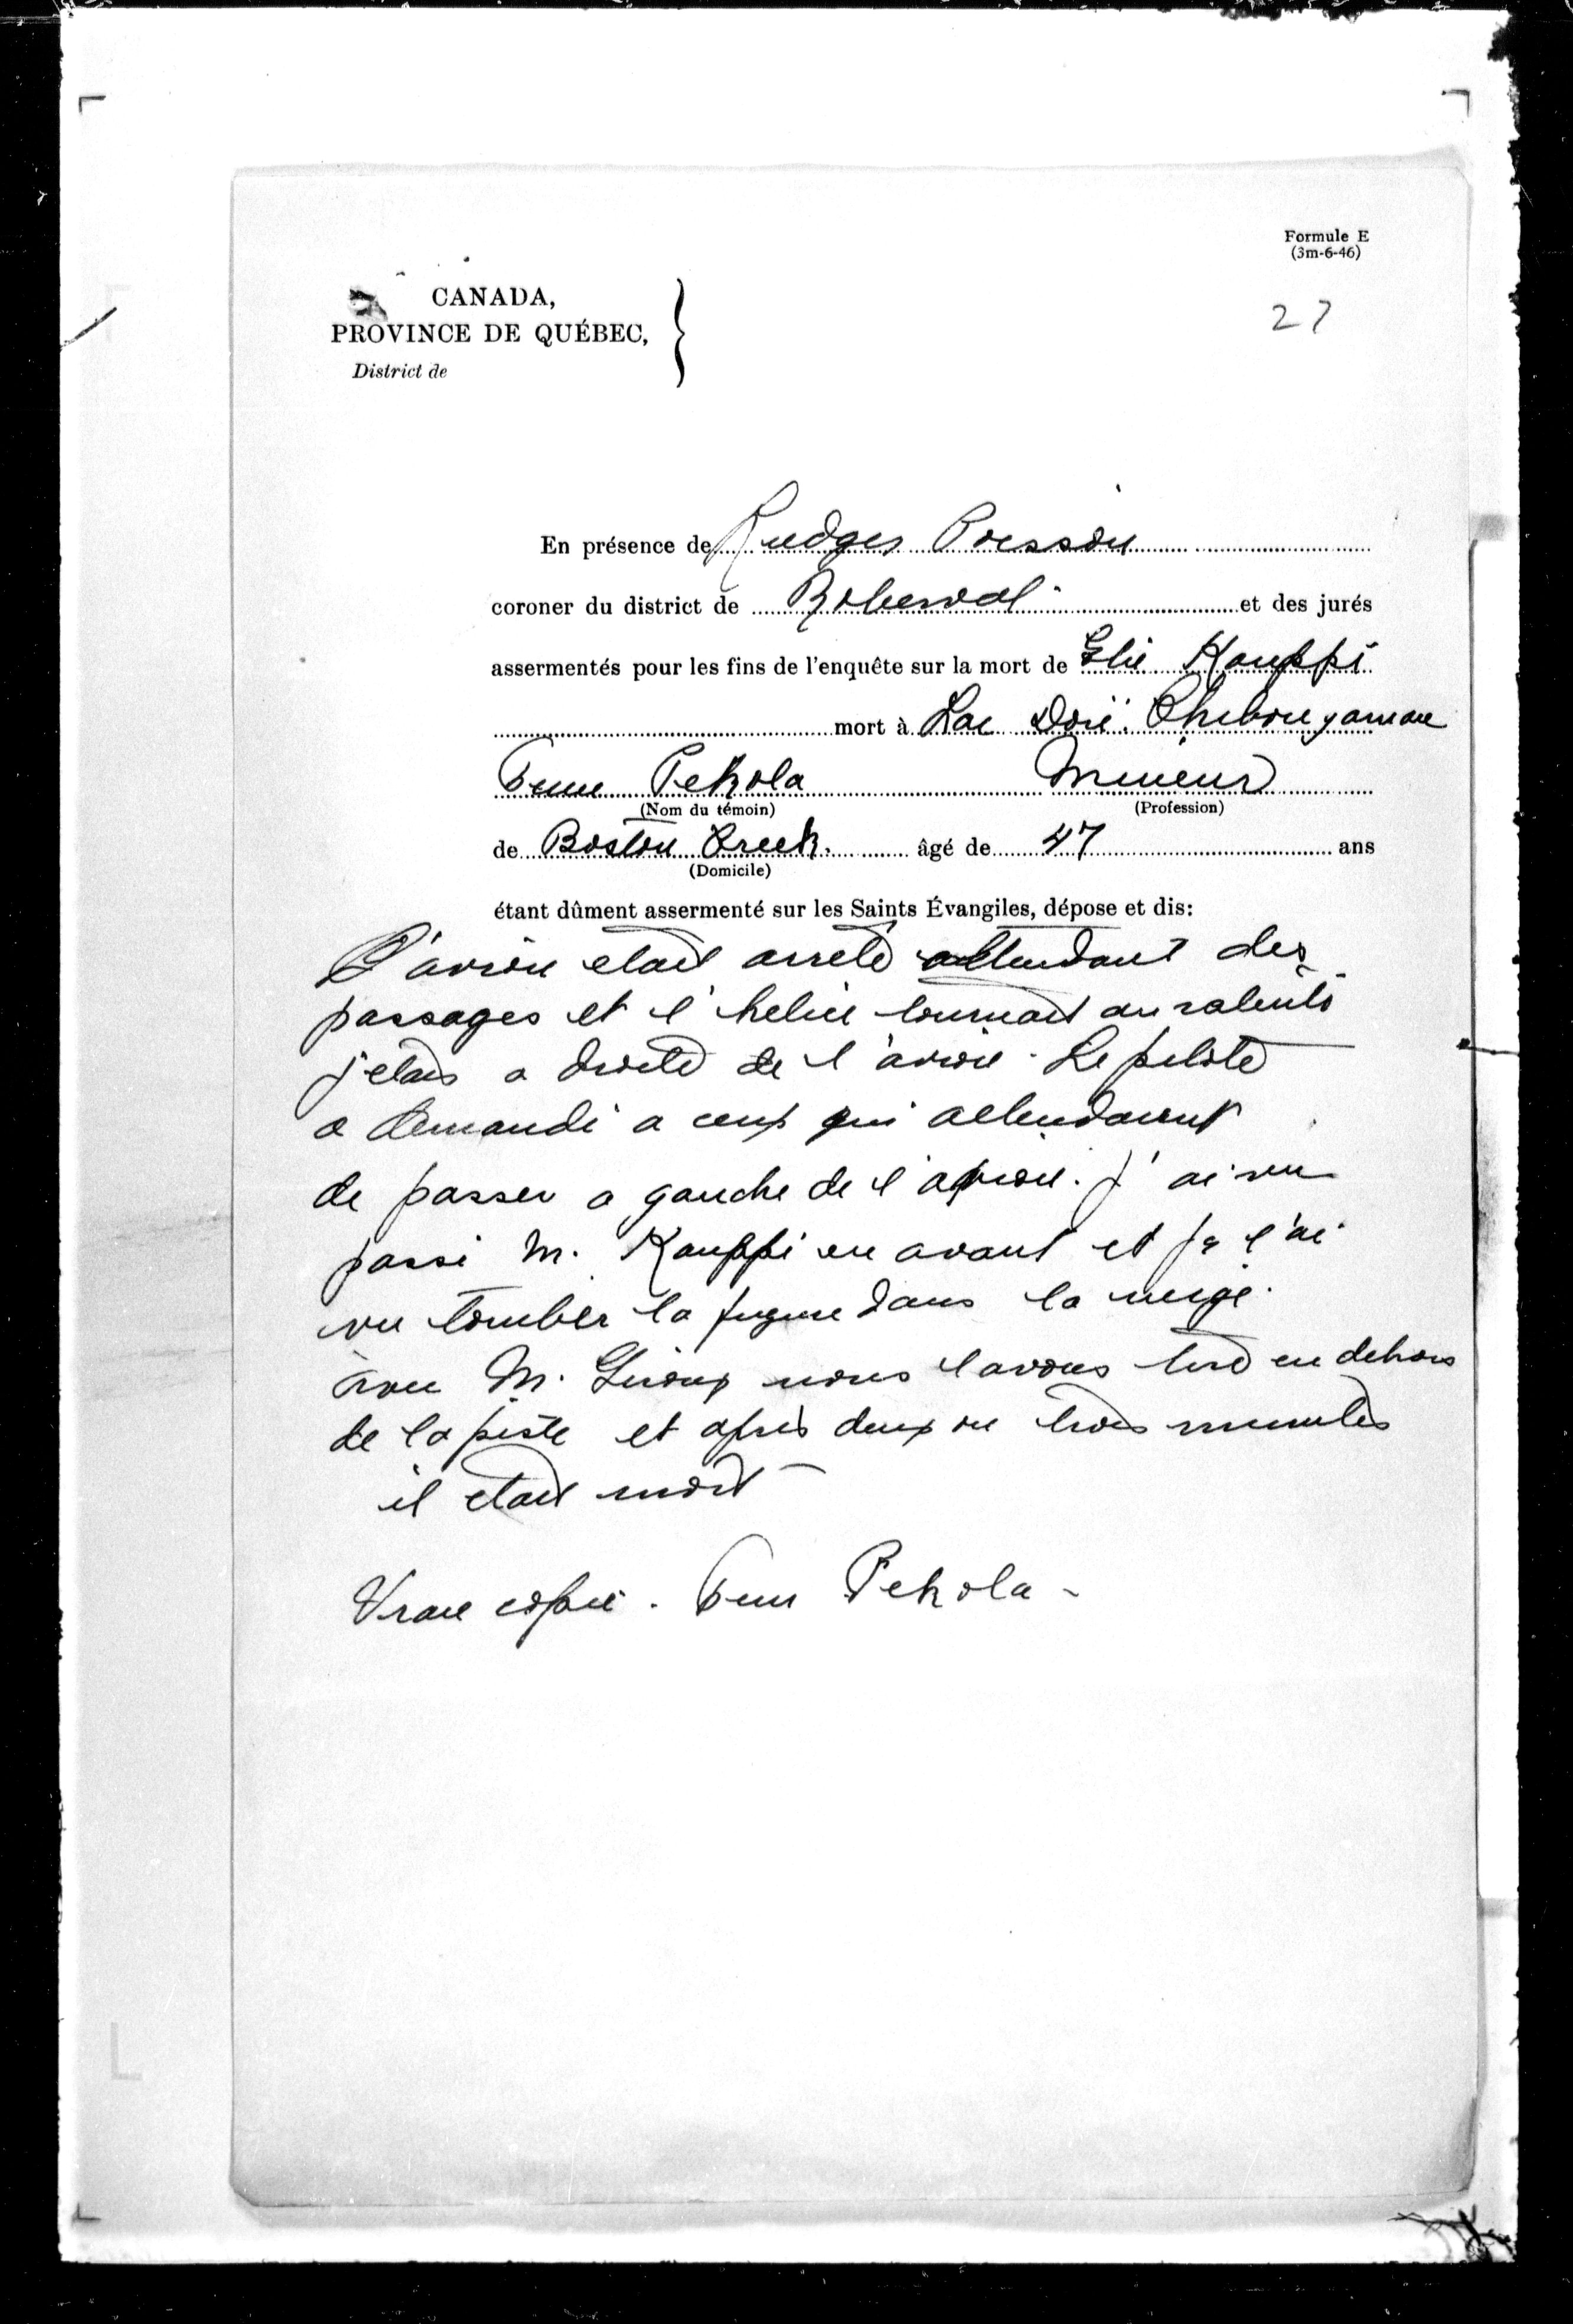 Formule E
(3m-6-46)
27
CANADA,
PROVINCE DE QUÉBEC,
District de
En présence de Rudger Poisson
coroner du district de Roberval et des jurés
assermentés pour les fins de l'enquête sur la mort de Elie Kauppi
mort à Lac Doré. Chibougamau
Pekola Mineur
(Nom du témoin) (Profession)
de Boston Creek. âgé de 47 ans
(Domicile)
étant dûment assermenté sur les Saints Évangiles, dépose et dis:
L'avion etait arrete attendant des
passages et l'helice tournait au ralenti
j'etais a droite de l'avion. Le pilote
a demandé a ceux qui attendaient
de passer a gauche de l'avion. j'ai vu
passé M. Kauppi en avant et je l'ai
vu tomber la figure dans la neige.
avec M. Giroux nous l'avons tiré en dehors
de la piste et après deux ou trois minutes
il etait mort
Vraie copie. Pekola